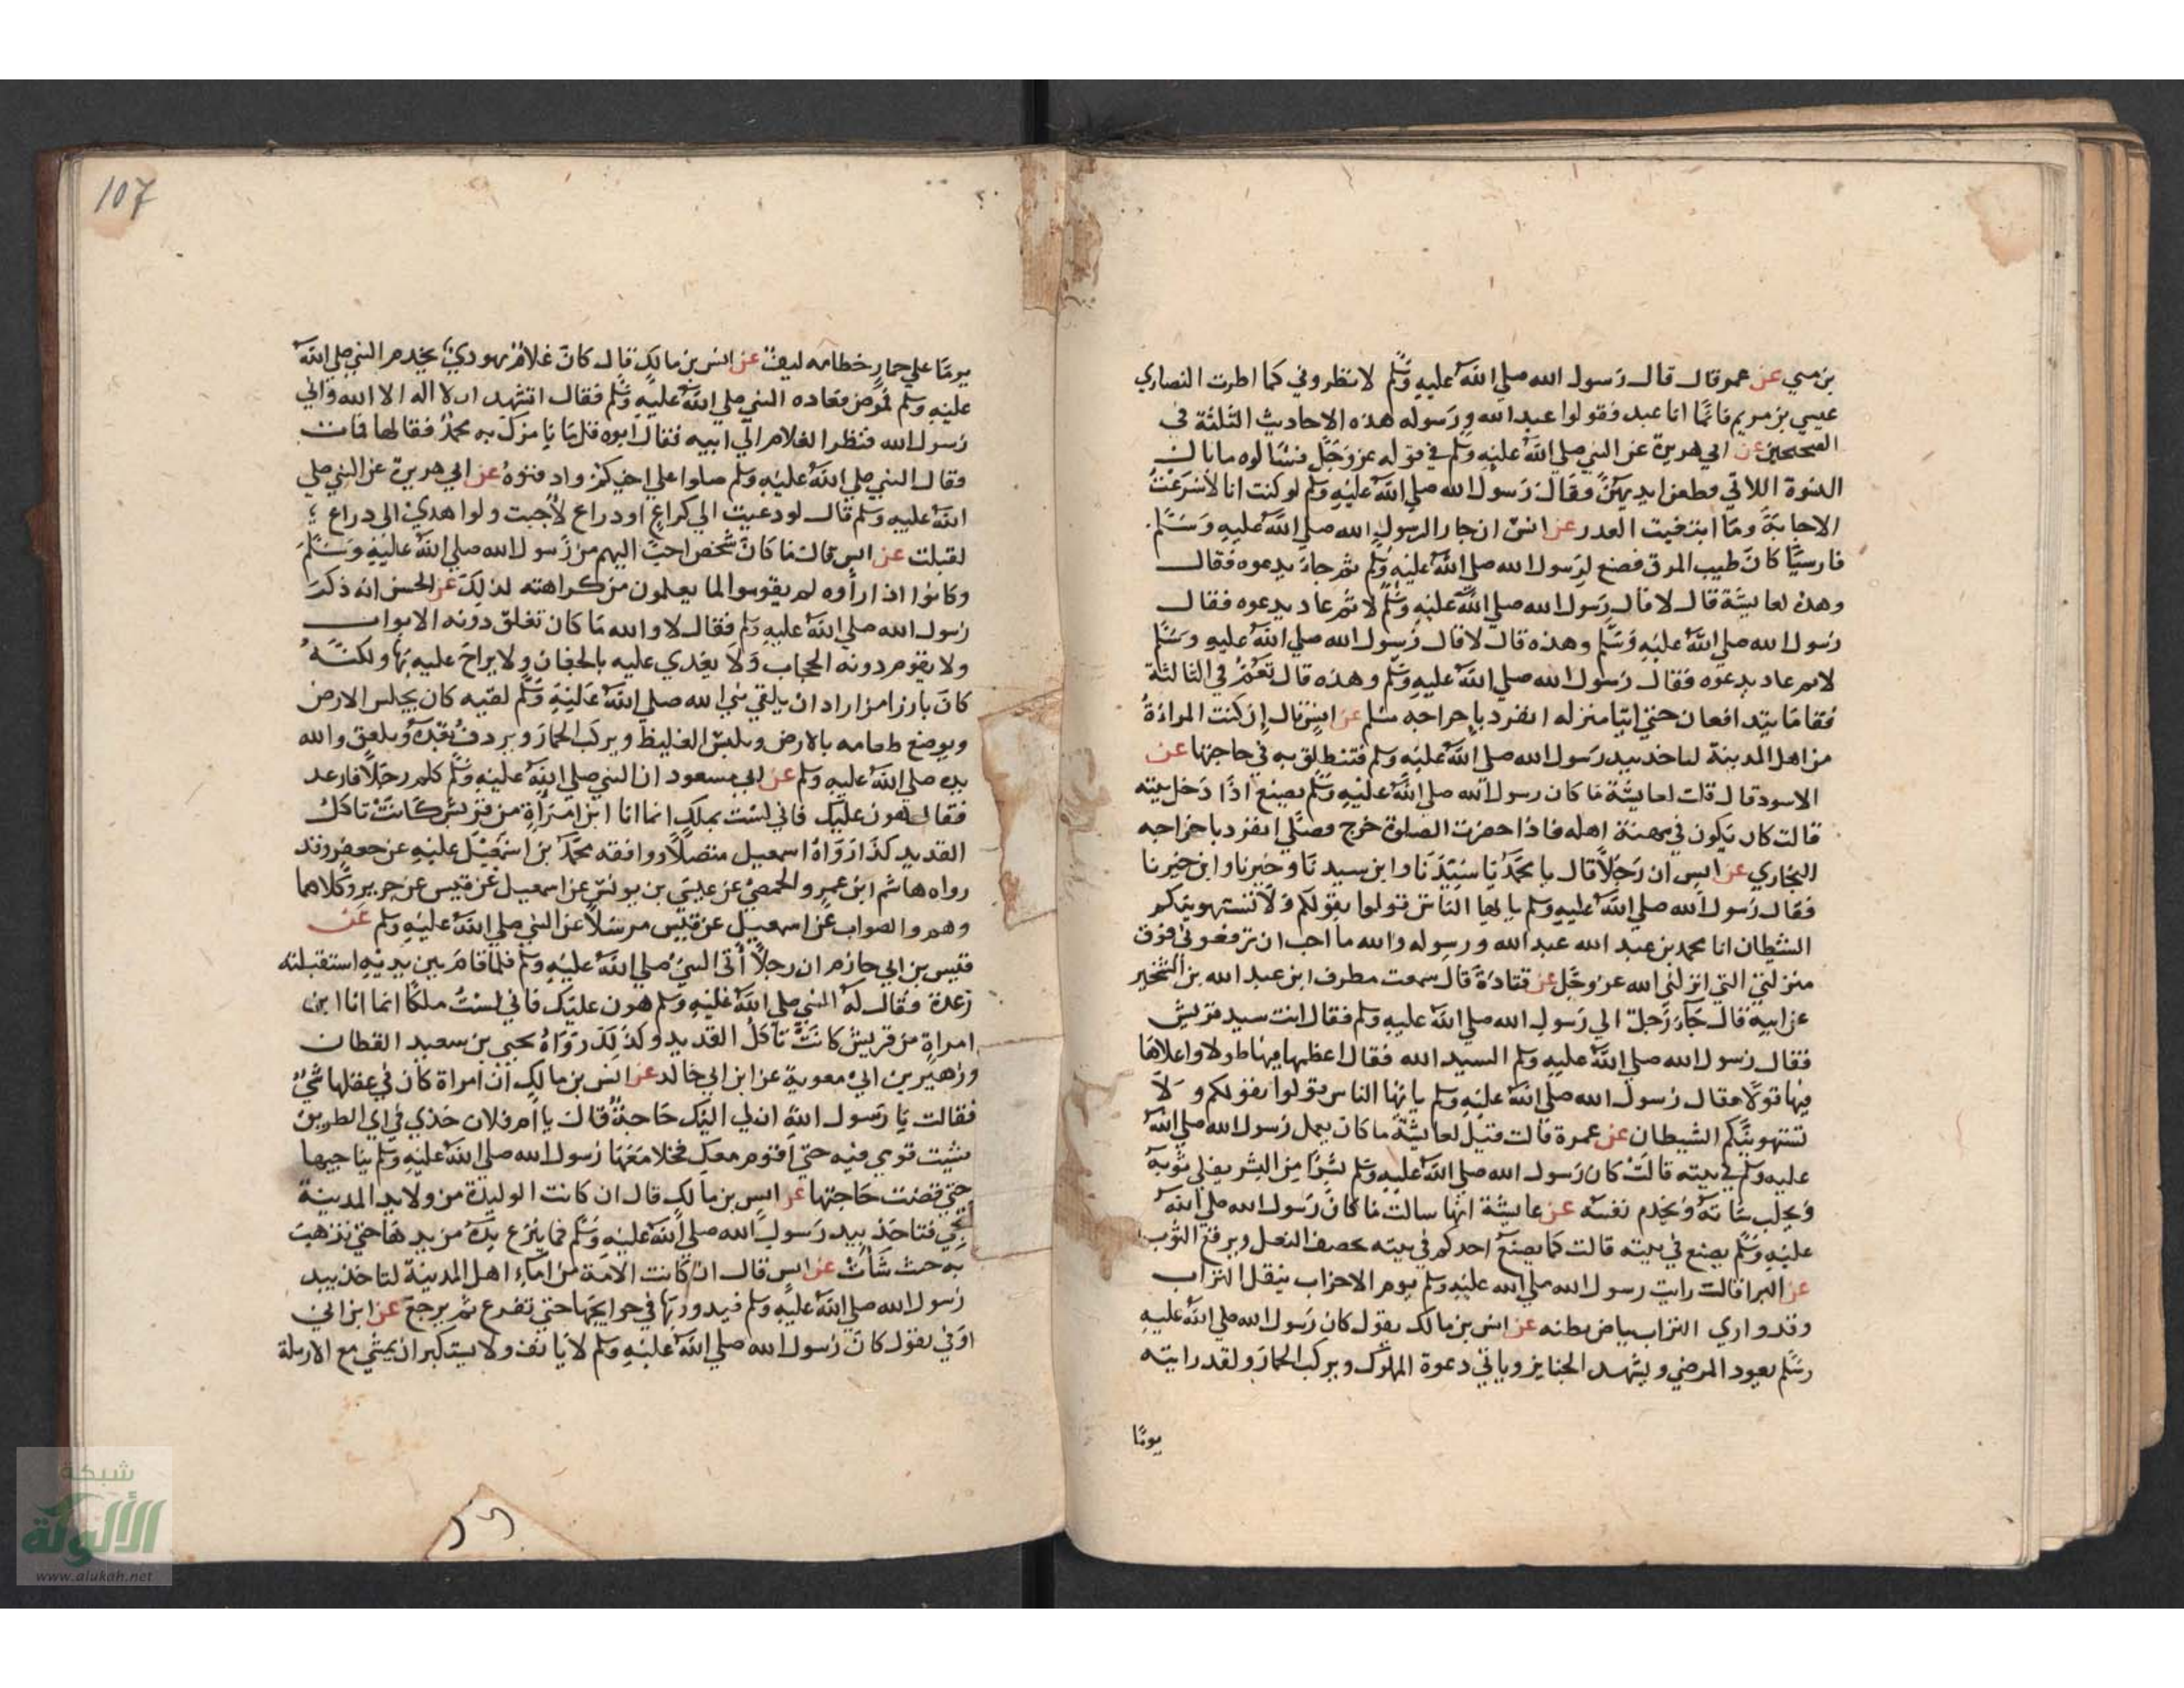 بن متي عن عمر قال قال رسول الله صلي الله عليه وسلم لا تطروني كما اطرت النصاري
عيسي بن مريم فانما انا عبد فقولوا عبد الله ورسوله هذه الاحاديث الثلثة في
الصحيحين عن ابي هريرة عن النبي صلي الله عليه وسلم في قوله عز وجل فسالوه ما بال
النسوة اللاتي قطعن ايديهن وقال رسول الله صلي الله عليه وسلم لو كنت انا لاسرعت
الاجابة وما ابتغيت العدر عن انس ان جار الرسول الله صلي الله عليه وسلم
فارسيا كان طيب المرق فصنع لرسول الله صلي الله عليه وسلم ثم جاء يدعوه فقال
وهذه لعايشة قال لا قال رسول الله صلي الله عليه وسلم لا ثم عاد يدعوه فقال
رسول الله صلي الله عليه وسلم وهذه قال لا قال رسول الله صلي الله عليه وسلم
لا ثم عاد يدعوه فقال رسول الله صلي الله عليه وسلم وهذه قال نعم في الثالثة
فقاما يتدافعان حتي اتيا منزله انفرد باخراجه مسلم عن انس قال ان كنت المراة
من اهل المدينة لتاخذ بيد رسول الله صلي الله عليه وسلم فتنطلق به في حاجتها عن
الاسود قال قلت لعايشة ما كان رسول الله صلي الله عليه وسلم يصنع اذا دخل بيته
قالت كان يكون في مهنة اهله فاذا حضرت الصلوة خرج فصلي انفرد باخراجه
البخاري عن انس ان رجلا قال يا محمد يا سيدنا وابن سيدنا وخيرنا وابن خيرنا
فقال رسول الله صلي الله عليه وسلم يا ايها الناس قولوا بقولكم ولا تستهوينكم
الشيطان انا محمد بن عبد الله عبد الله ورسوله والله ما احب ان ترفعوني فوق
منزلتي التي انزلني الله عز وجل عن قتادة قال سمعت مطرف ابن عبد الله بن الشخير
عن ابيه قال جاء رجل الي رسول الله صلي الله عليه وسلم فقال انت سيد قريش
فقال رسول الله صلي الله عليه وسلم السيد الله فقال اعظمها فيها طولا واعلاها
فيها قولا فقال رسول الله صلي الله عليه وسلم يا ايها الناس قولوا بقولكم ولا
تستهوينكم الشيطان عن عمرة قالت قيل لعايشة ما كان يعمل رسول الله صلي الله
عليه وسلم في بيته قالت كان رسول الله صلي الله عليه وسلم بشرا من البشر يفلي ثوبه
ويحلب شاته ويخدم نفسه عن عايشة انها سالت ما كان رسول الله صلي الله
عليه وسلم يصنع في بيته قالت كما يصنع احدكم في بيته يخصف النعل ويرقع الثوب
عن البرا قالت رايت رسول الله صلي الله عليه وسلم يوم الاحزاب ينقل التراب
وقد واري التراب بياض بطنه عن انس بن مالك يقول كان رسول الله صلي الله عليه
وسلم يعود المرضي ويشهد الجنايز وياتي دعوة المملوك ويركب الحمار ولقد رايته
يوما
107
يوما علي حمار خطامه ليف عن انس بن مالك قال كان غلام يهودي يخدم النبي صلي الله
عليه وسلم فمرض فعاده النبي صلي الله عليه وسلم فقال اتشهد ان لا اله الا الله واني
رسول الله فنظر الغلام الي ابيه فقال ابوه قل ما يامرك به محمد فقالها فمات
وقال النبي صلي الله عليه وسلم صلوا علي اخيكم وادفنوه عن ابي هريرة عن النبي صلي
الله عليه وسلم قال لو دعيت الي كراع او دراع لاجبت ولو اهدي الي دراع
لقبلت عن انس قال ما كان شخص احب اليهم من رسول الله صلي الله عليه وسلم
وكانوا اذا راوه لم يقوموا لما يعلمون من كراهته لذلك عن الحسن انه ذكر
رسول الله صلي الله عليه وسلم فقال لا والله ما كان تغلق دونه الابواب
ولا يقوم دونه الحجاب ولا يغدي عليه بالجفان ولا يراح عليه بها ولكنه
كان بارزا من اراد ان يلقي نبي الله صلي الله عليه وسلم لقيه كان يجلس الارض
ويوضع طعامه بالارض ويلبس الغليظ ويركب الحمار ويردف عبده ويلعق والله
يده صلي الله عليه وسلم عن ابي مسعود ان النبي صلي الله عليه وسلم كلم رجلا فارعد
فقال هون عليك فاني لست بملك انما انا ابن امراة من قريش كانت تاكل
القديد كذا رواه اسمعيل متصلا ووافقه محمد بن اسمعيل عليه عن جعفر وقد
رواه هاشم ابن عمرو الحمصي عن عيسي بن يونس عن اسمعيل عن قيس عن جرير وكلاهما
وهم والصواب عن اسمعيل عن قيس مرسلا عن النبي صلي الله عليه وسلم عن
قيس بن ابي حازم ان رجلا اتي النبي صلي الله عليه وسلم فلما قام بين يديه استقبلته
رعدة فقال له النبي صلي الله عليه وسلم هون عليك فاني لست ملكا انما انا ابن
امراة من قريش كانت تاكل القديد وكذلك رواه يحيي بن سعيد القطان
وزهير بن ابي معوية عن ابن ابي خالد عن انس بن مالك ان امراة كان في عقلها شي
فقالت يا رسول الله ان لي اليك حاجة قال يا ام فلان خذي في اي الطريق
شيت قومي فيه حتي اقوم معك فخلا معها رسول الله صلي الله عليه وسلم يناجيها
حتي قضت حاجتها عن انس بن مالك قال ان كانت الوليدة من ولايد المدينة
تجي فتاخذ بيد رسول الله صلي الله عليه وسلم فما ينزع يده من يدها حتي تذهب
به حيث شات عن انس قال ان كانت الامة من اماء اهل المدينة لتاخذ بيد
رسول الله صلي الله عليه وسلم فيدور بها في حوايجها حتي تفرغ ثم يرجع عن ابن ابي
اوفي يقول كان رسول الله صلي الله عليه وسلم لا يانف ولا يستكبر ان يمشي مع الارملة
شبكة
الألوكة
www.alukah.net